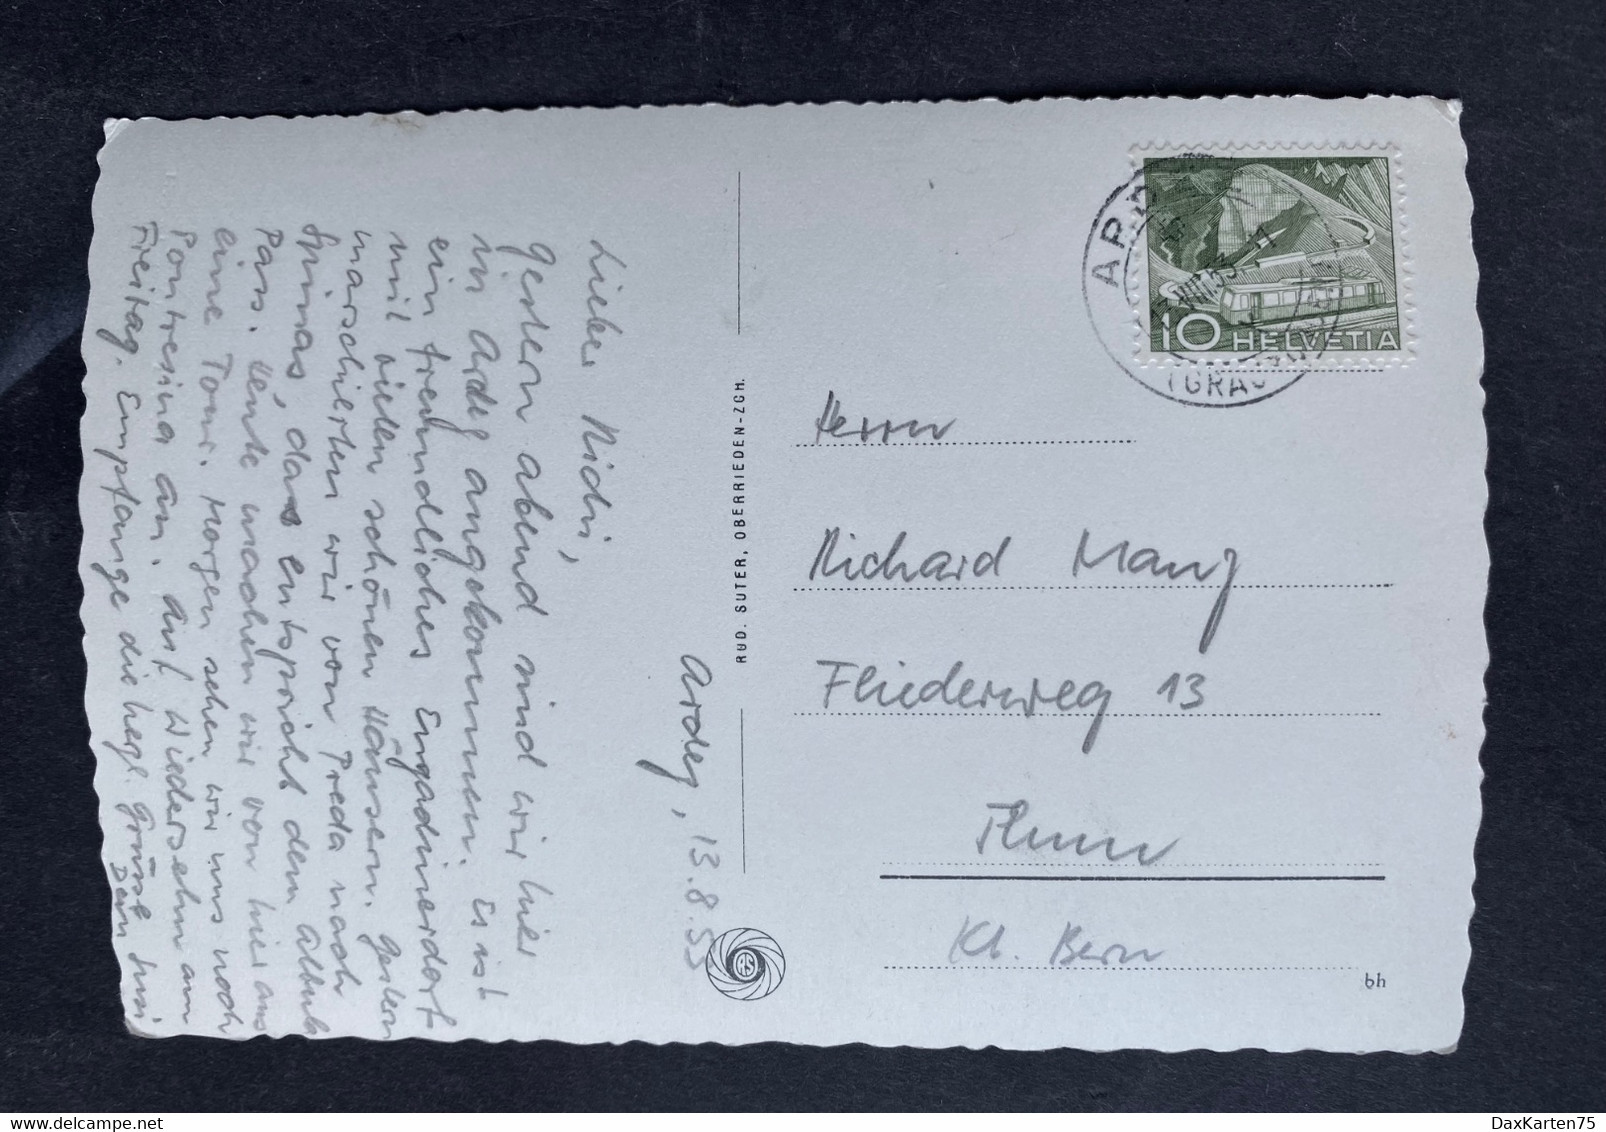 Ardez, 13.8.53
Lieber Richi,
Gestern abend sind wir hier
in Ardez angekommen. Es ist
ein freundliches Engadinerdorf
mit vielen schönen Häusern. Gestern
marschierten wir von Preda nach
Spinas, das entspricht dem Albula
Pass. Heute machen wir von hier aus
eine Tour. Morgen sehen wir uns noch
Pontresina an. Auf Wiedersehn am
Freitag. Empfange die herzl. Grüsse
Dein
RUD. SUTER, OBERRIEDEN-ZCH.
RS
ARDEZ
VIII.53
(GRAU
10 HELVETIA
Herrn
Richard Manz
Fliederweg 13
Thun
Kt. Bern
bh
DaxKarten75